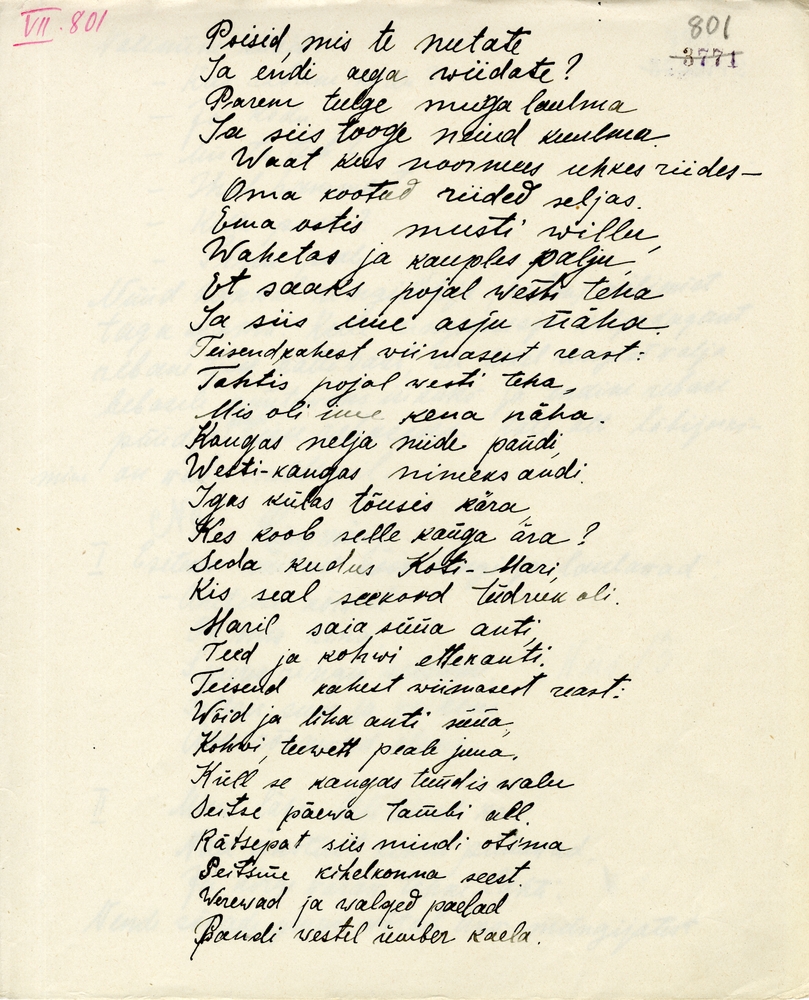 VII. 801
801
3771
Poisid, mis te nutate
Ja endi aega wiidate?
Parem tulge muga laulma
Ja siis tooge neiud kuulma.
Waat kus noormees uhkes riides—
Oma kootud riided seljas.
Ema ostis musti willu,
Wahetas ja kauples palju,
Et saaks pojal westi teha
Ja siis ime asju näha.
Teisendkahest wiimasest reast:
Tahtis pojal westi teha,
Mis oli ime kena näha.
Kangas nelja niide pandi,
Westi-kangas nimeks andi.
Igas külas tõusis kära,
Kes koob selle kanga ära?
Seda kudus Koti-Mari,
Kis seal seekord tüdruk oli.
Maril saia süüa anti,
Teed ja kohwi ettekanti.
Teisend kahest wiimasest reast:
Wõid ja liha anti süüa,
Kohwi, teewett peale juua.
Küll se kangas tundis walu
Seitse päewa lambi all.
Rätsepat siis mindi otsima
Seitsme kihelkonna seest.
Werewad ja walged paelad
Pandi westel ümber kaela.